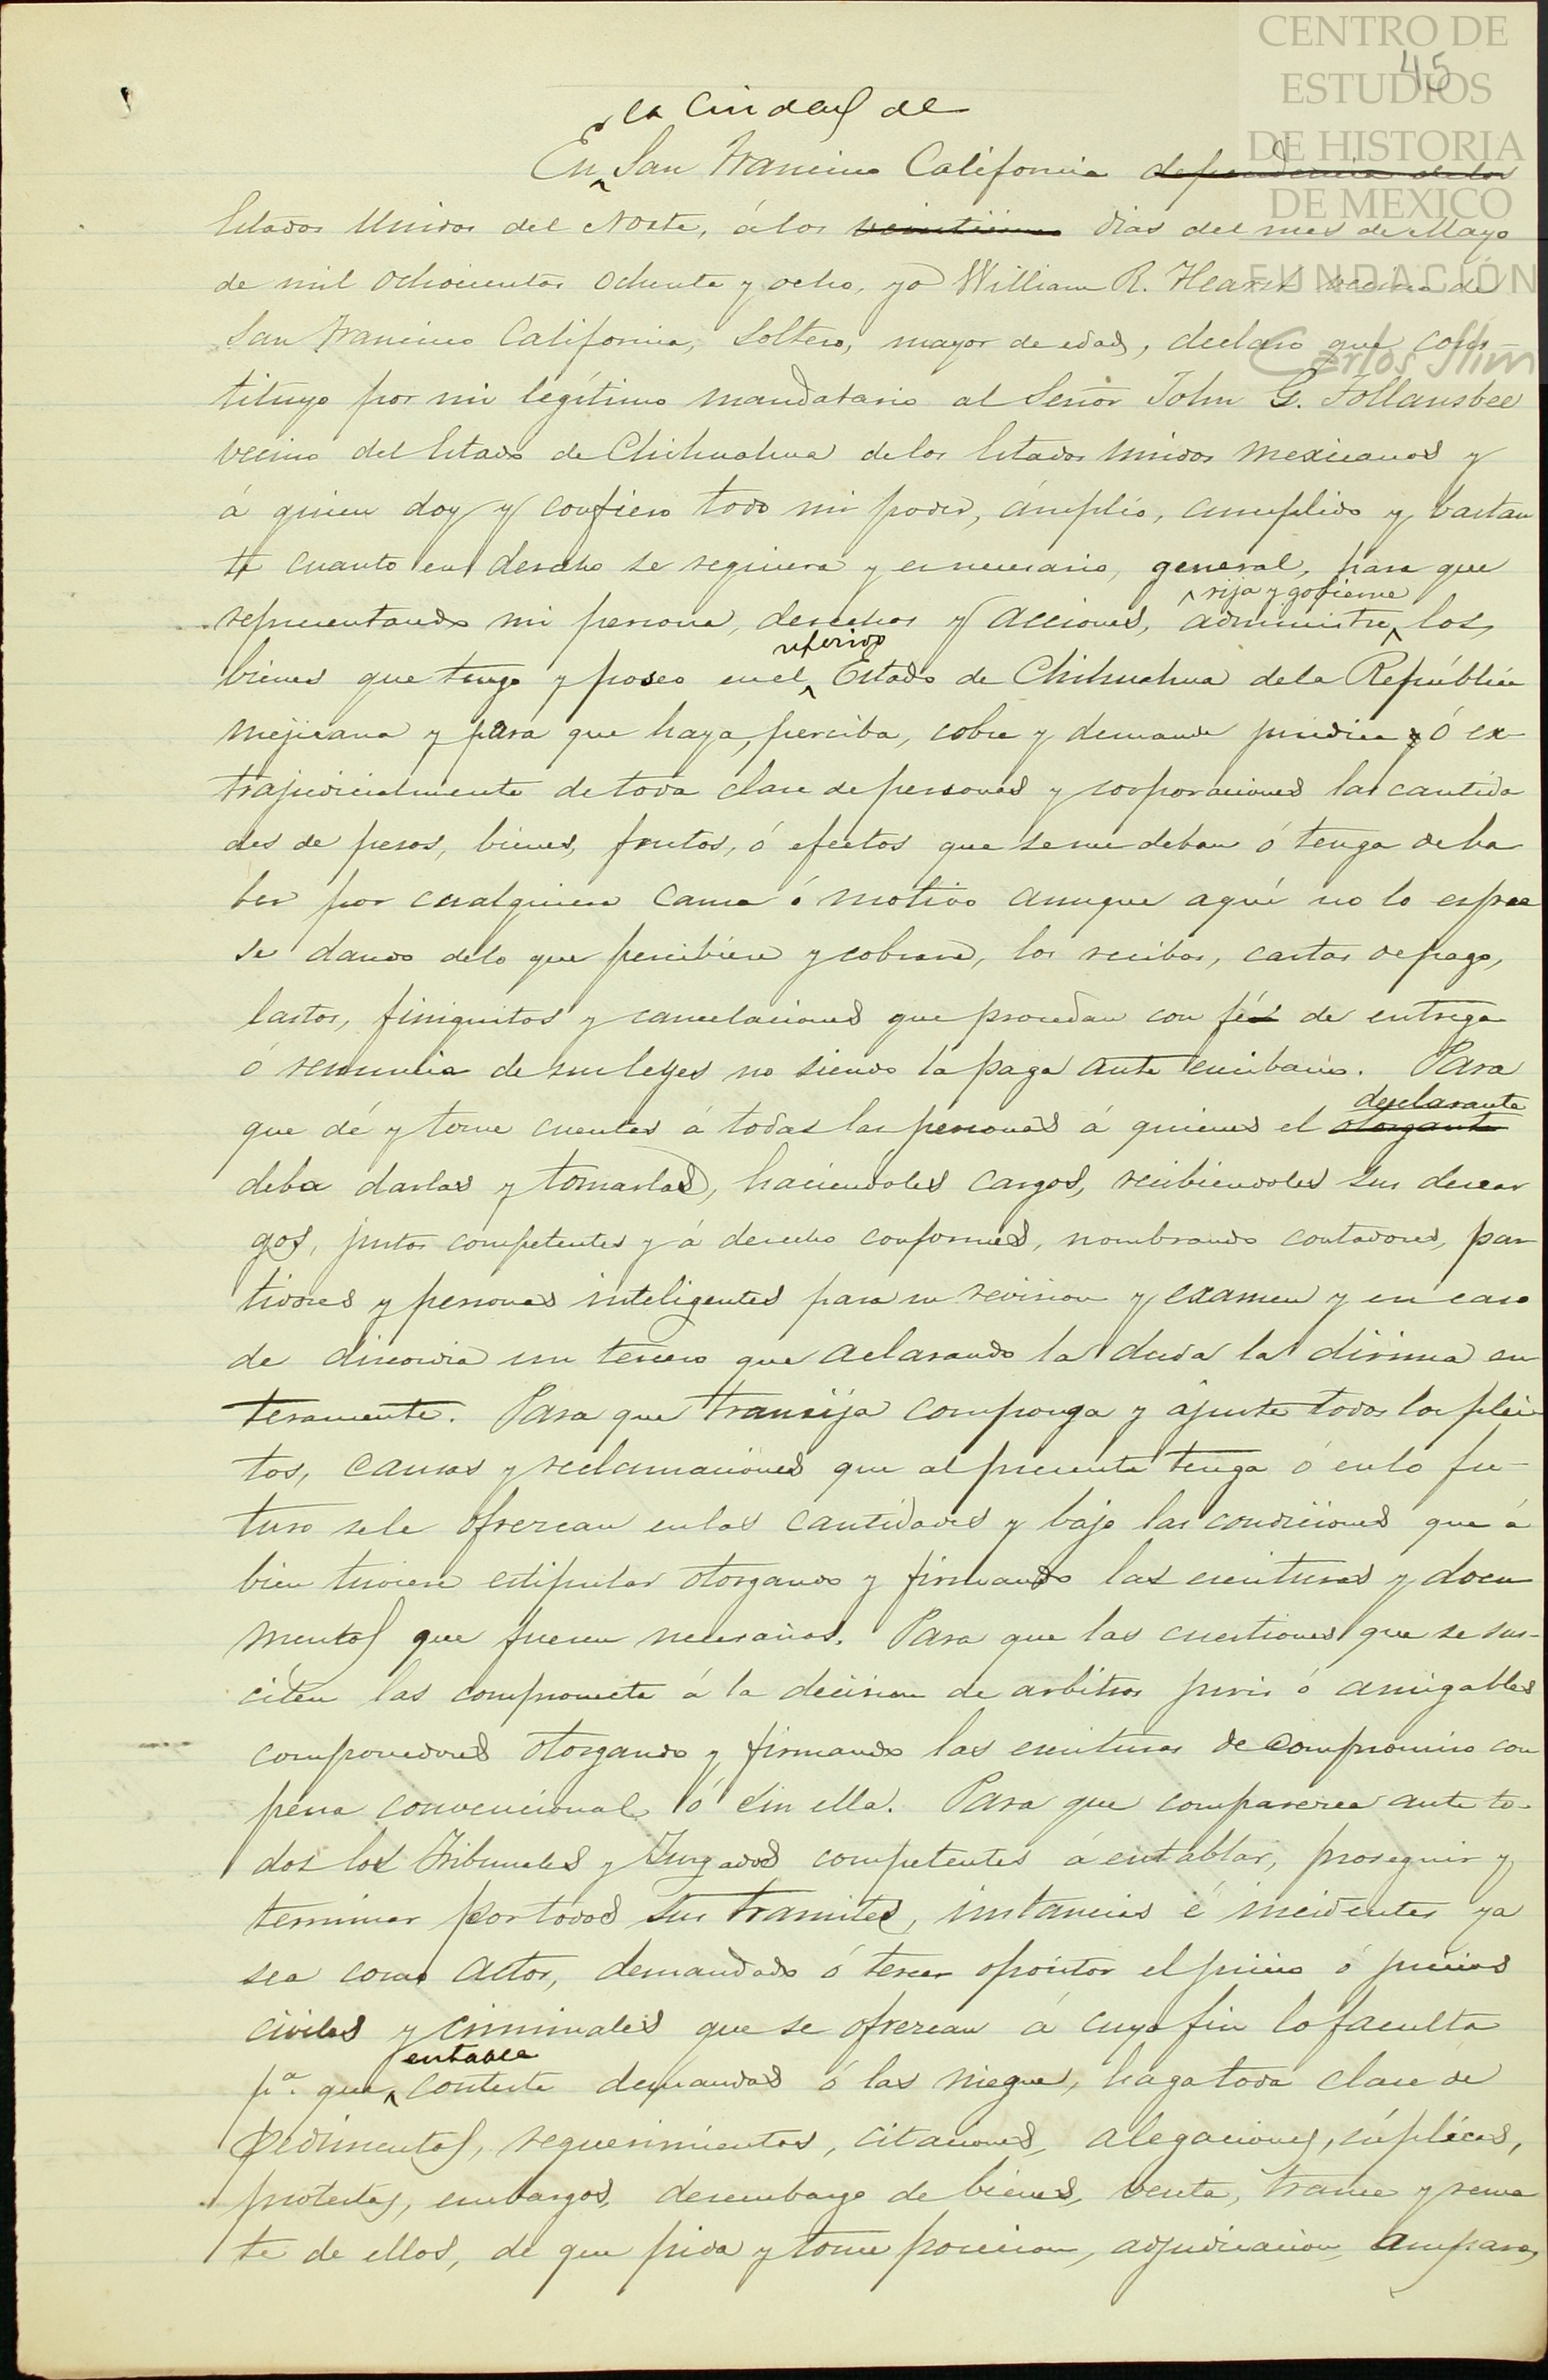 CENTRO DE
ESTUDIOS
DE HISTORIA
DE MEXICO
FUNDACIÓN
Carlos Slim
45
la Ciudad de
En San Francisco California dependencia de los
Estados Unidos del Norte, á los veintiuno dias del mes de Mayo
de mil ochocientos ochenta y ocho, yo William R. Hearst vecino de
San Francisco California, soltero, mayor de edad, declaro que cons-
tituyo por mi legítimo mandatario al Señor John G. Follansbee
vecino del Estado de Chihuahua de los Estados Unidos Mexicanos y
á quien doy y confiero todo mi poder, ámplio, cumplido y bastan
te cuanto en derecho se requiera y es necesario, general, para que
rija y gobierne
representando mi persona, derechos y acciones, administre los
referido
bienes que tengo y poseo en el Estado de Chihuahua de la República
mejicana y para que haya, perciba, cobre y demande judicial ó ex-
trajudicialmente de toda clase de personas y corporaciones las cantida
des de pesos, bienes, frutos, ó efectos que se me deban ó tenga de ha
ber por cualquiera causa ó motivo aunque aquí no lo espre
se dando de lo que percibiere y cobrare, los recibos, cartas de pago,
lastos, finiquitos y cancelaciones que procedan con fé de entrega
ó renuncia de sus leyes no siendo la paga ante escribano. Para
declarante
que dé y tome cuentas á todas las personas á quienes el otorgante
deba darlas y tomarlas, haciendoles cargos, recibiendoles sus descar
gos, justos competentes y á derecho conformes, nombrando contadores, par
tidores y personas inteligentes para su revision y examen y en caso
de discordia un tercero que aclarando la duda la dirima en
teramente. Para que transija componga y ajuste todos los plei
tos, causas y reclamaciones que al presente tenga ó en lo fu-
turo se le ofrezcan en las cantidades y bajo las condiciones que á
bien tuviere estipular otorgando y firmando las escrituras y docu
mentos que fueren necesarios. Para que las cuestiones que se sus-
citen las comprometa á la decision de arbitros juris ó amigables
componedores otorgando y firmando las escrituras de compromiso con
pena convencional ó sin ella. Para que comparezca ante to-
dos los Tribunales y Juzgados competentes á entablar, proseguir y
terminar por todos sus tramites, instancias é incidentes ya
sea como actor, demandado ó tercer opositor el juicio ó juicios
civiles y criminales que se ofrezcan á cuyo fin lo faculta
entable
pa. que conteste demandas ó las niegue, haga toda clase de
pedimentos, requerimientos, citaciones, alegaciones, súplicas,
protestas, embargos, desembargo de bienes, venta, trance y rema
te de ellos, de que pida y tome posecion, adjudicacion, amparos,